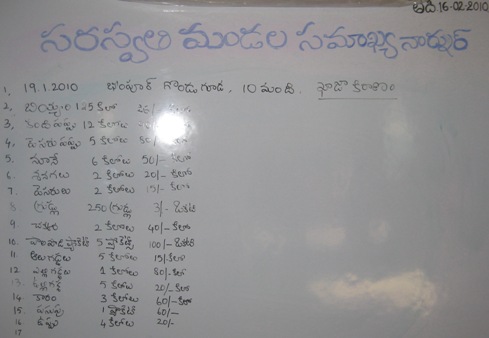 తేది.16-02-2010
సరస్వతి మండల సమాఖ్య నార్నూర్
1, 19.1.2010 భీంపూర్ గొండు గూడ, 10 మంది.
2, బియ్యం 125 కిలో
3, కందిపప్పు 12 కిలోలు
4, పెసరుపప్పు 5 కిలోలు 80/- కిలో
5. నూనే 6 కిలోలు 50/- కిలో
6. శనగలు 2 కిలోలు 20/- కిలో
7. పెసరులు 2 కిలోలు 15/- కిలో
8 గ్రుడ్లు 250 గ్రుడ్లు 3/- ఒకటి
9 2 కిలోలు 40/- కిలో
10. 5 ప్యాకెట్స్ 100/- ఒకటి
11. ఆలుగడ్డలు 5 కిలోలు 15/- కిలో
12 ఎల్లిగడ్డలు 1 కిలోలు 80/- కిలో
13. ఉల్లిగడ్డ 5 కిలోలు 20/- కిలో
14. కారం 3 కిలోలు 60/- కిలో
15. పసుపు 1 ప్యాకెట్ 60/-
16 ఉప్పు 4 కిలోలు 20/-
17